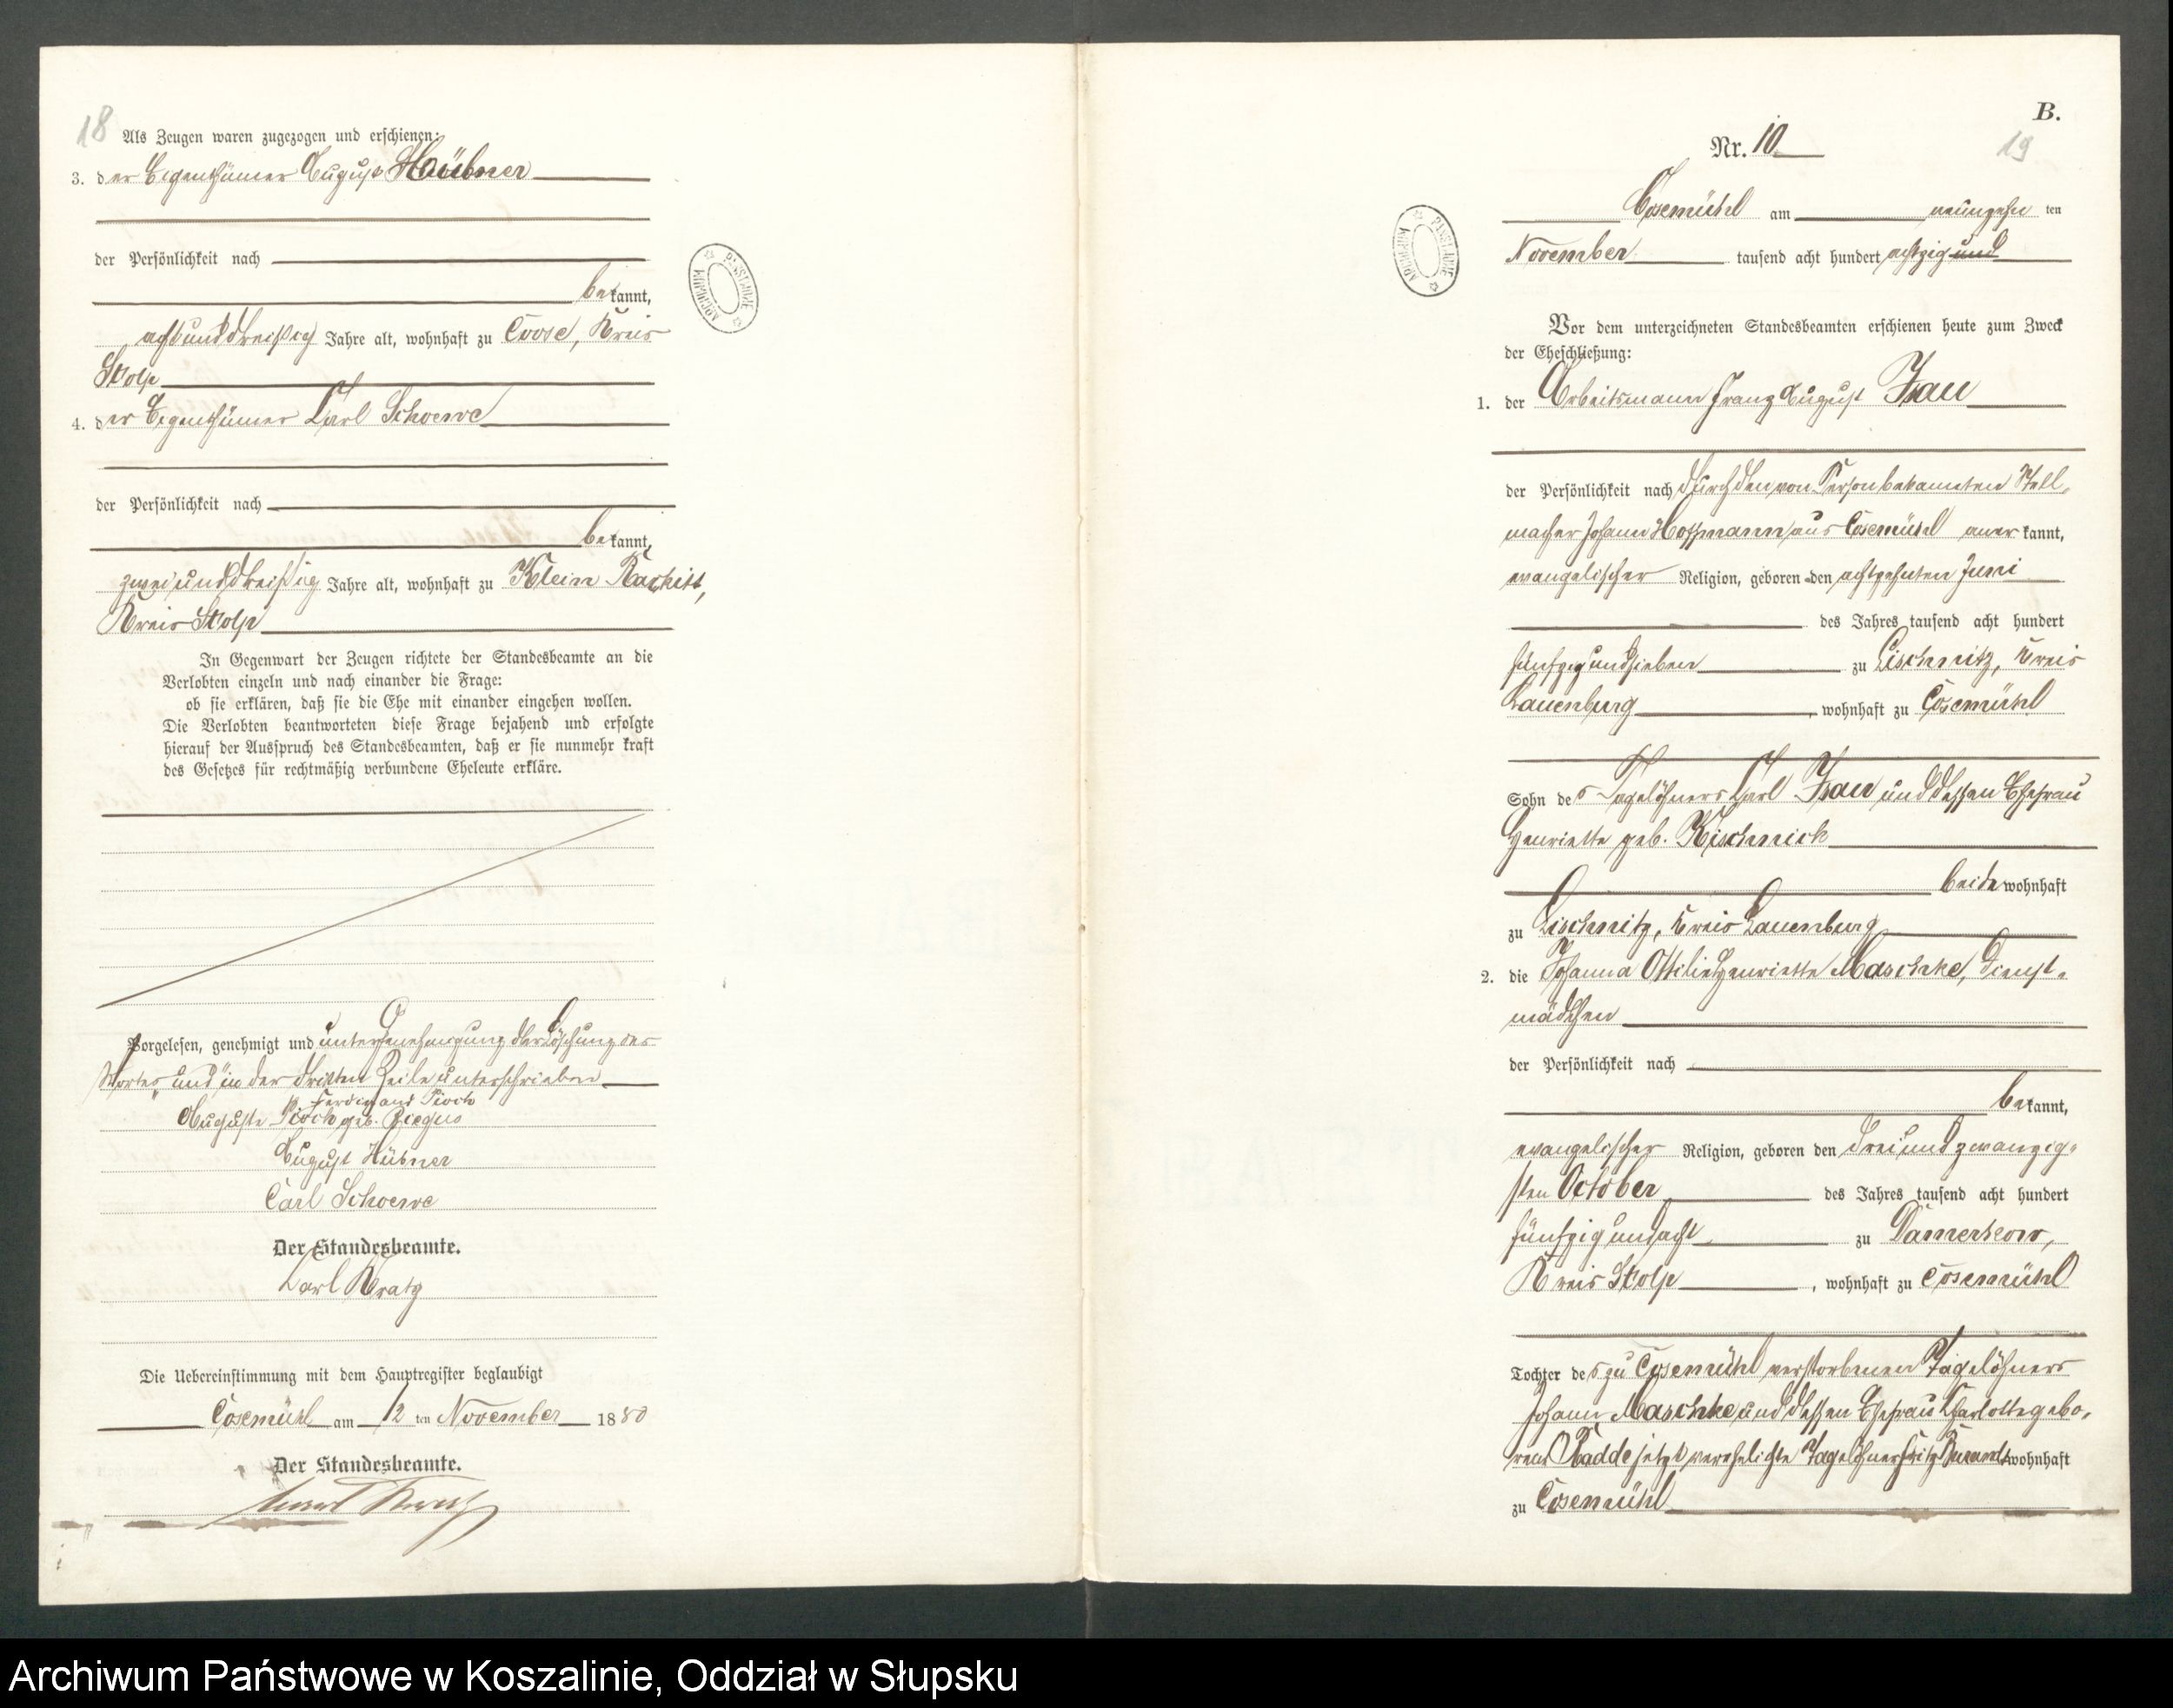 18
Als Zeugen waren zugezogen und erschienen:
3. der Eigenthümer August Hübner
der Persönlichkeit nach
bekannt,
achtunddreißig Jahre alt, wohnhaft zu Coose, Kreis
Stolp
4. der Eigenthümer Carl Schoewe
der Persönlichkeit nach
bekannt,
zweiunddreißig Jahre alt, wohnhaft zu Klein Rakitt,
Kreis Stolp
In Gegenwart der Zeugen richtete der Standesbeamte an die
Verlobten einzeln und nach einander die Frage:
ob sie erklären, daß sie die Ehe mit einander eingehen wollen.
Die Verlobten beantworteten diese Frage bejahend und erfolgte
hierauf der Ausspruch des Standesbeamten, daß er sie nunmehr kraft
des Gesetzes für rechtmäßig verbundene Eheleute erkläre.
Vorgelesen, genehmigt und unter Genehmigung der Löschung des
Wortes „und" in der dritten Zeile unterschrieben
Ferdinand Pioch
Auguste Pioch geb. Ziegus
August Hübner
Carl Schoewe
Der Standesbeamte.
Carl Kratz
Die Uebereinstimmung mit dem Hauptregister beglaubigt
Cosemühl am 12 ten November 1880
Der Standesbeamte.
B.
Nr. 10
19
Cosemühl am neunzehn ten
November tausend acht hundert achtzig und
Vor dem unterzeichneten Standesbeamten erschienen heute zum Zweck
der Eheschließung:
1. der Arbeitsmann Franz August
der Persönlichkeit nach durch den von Person bekannten Stell-
macher Johann Hoffmann aus Cosemühl anerkannt,
evangelischer Religion, geboren den achtzehnten Juni
des Jahres tausend acht hundert
fünfzig und sieben zu Lischnitz, Kreis
Lauenburg, wohnhaft zu Cosemühl
Sohn des Tagelöhners Carl und dessen Ehefrau
Henriette geb. Kischnick
beide wohnhaft
zu Lischnitz, Kreis Lauenburg
2. die Johanna Ottilie Henriette Maschke, Dienst-
mädchen
der Persönlichkeit nach
bekannt,
evangelischer Religion, geboren den dreiundzwanzig-
sten October des Jahres tausend acht hundert
fünfzig und acht zu Damerkow,
Kreis Stolp, wohnhaft zu Cosemühl
Tochter des zu Cosemühl verstorbenen Tagelöhners
Johann Maschke und dessen Ehefrau Charlotte gebo-
rene Radde jetzt verehelichte Tagelöhner Fritz wohnhaft
zu Cosemühl
Archiwum Państwowe w Koszalinie, Oddział w Słupsku